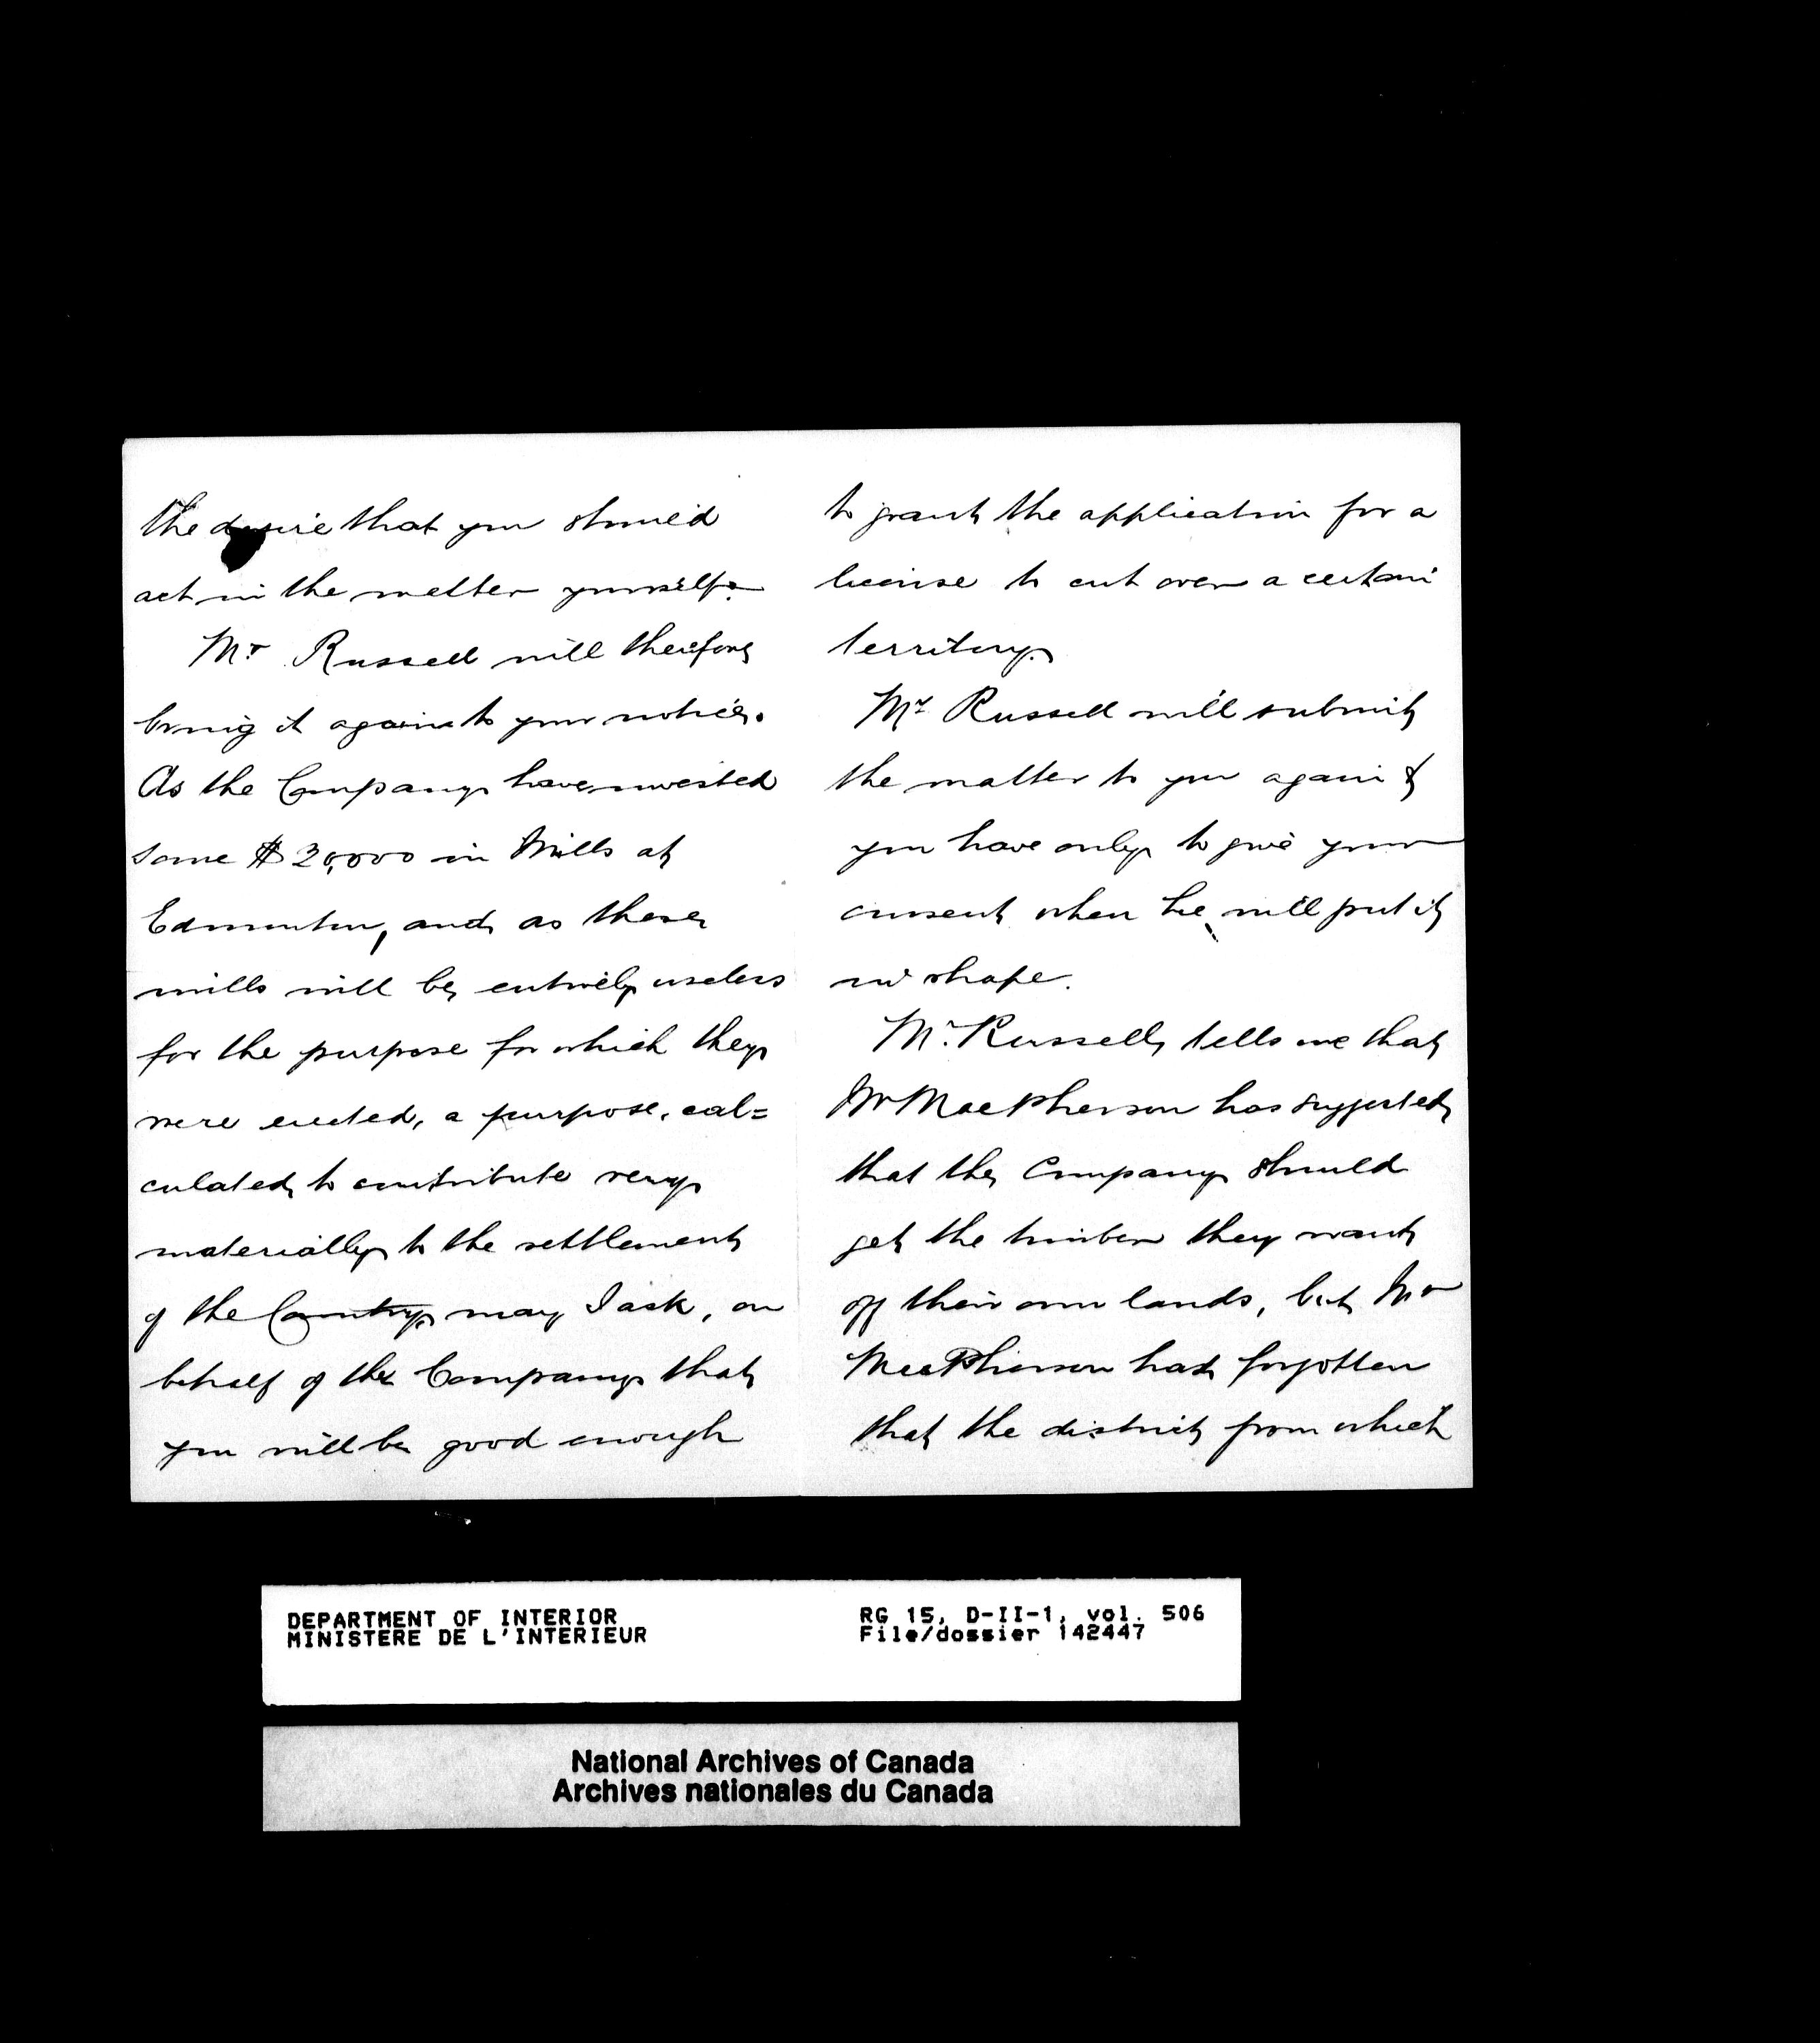 the desire that you should
act in the matter yourself.
Mr Russell will therefore
bring it again to your notice.
As the Company have invested
some $20,000 in Mills at
Edmonton, and as these
mills will be entirely useless
for the purpose for which they
were erected, a purpose, cal=
culated to contribute very
materially to the settlement
of the Country, may I ask, on
behalf of the Company that
you will be good enough
to grant the application for a
license to cut over a certain
territory.
Mr Russell will submit
the matter to you again &
you have only to give your
consent when he will put it
in shape.
Mr. Russell tells me that
Mr MacPherson has suggested
that the Company should
get the timber they want
off their own lands, but Mr
MacPherson had forgotten
that the district from which
DEPARTMENT OF INTERIOR
MINISTERE DE L'INTERIEUR
RG 15, D-II-1, vol. 506
File/dossier 142447
National Archives of Canada
Archives nationales du Canada